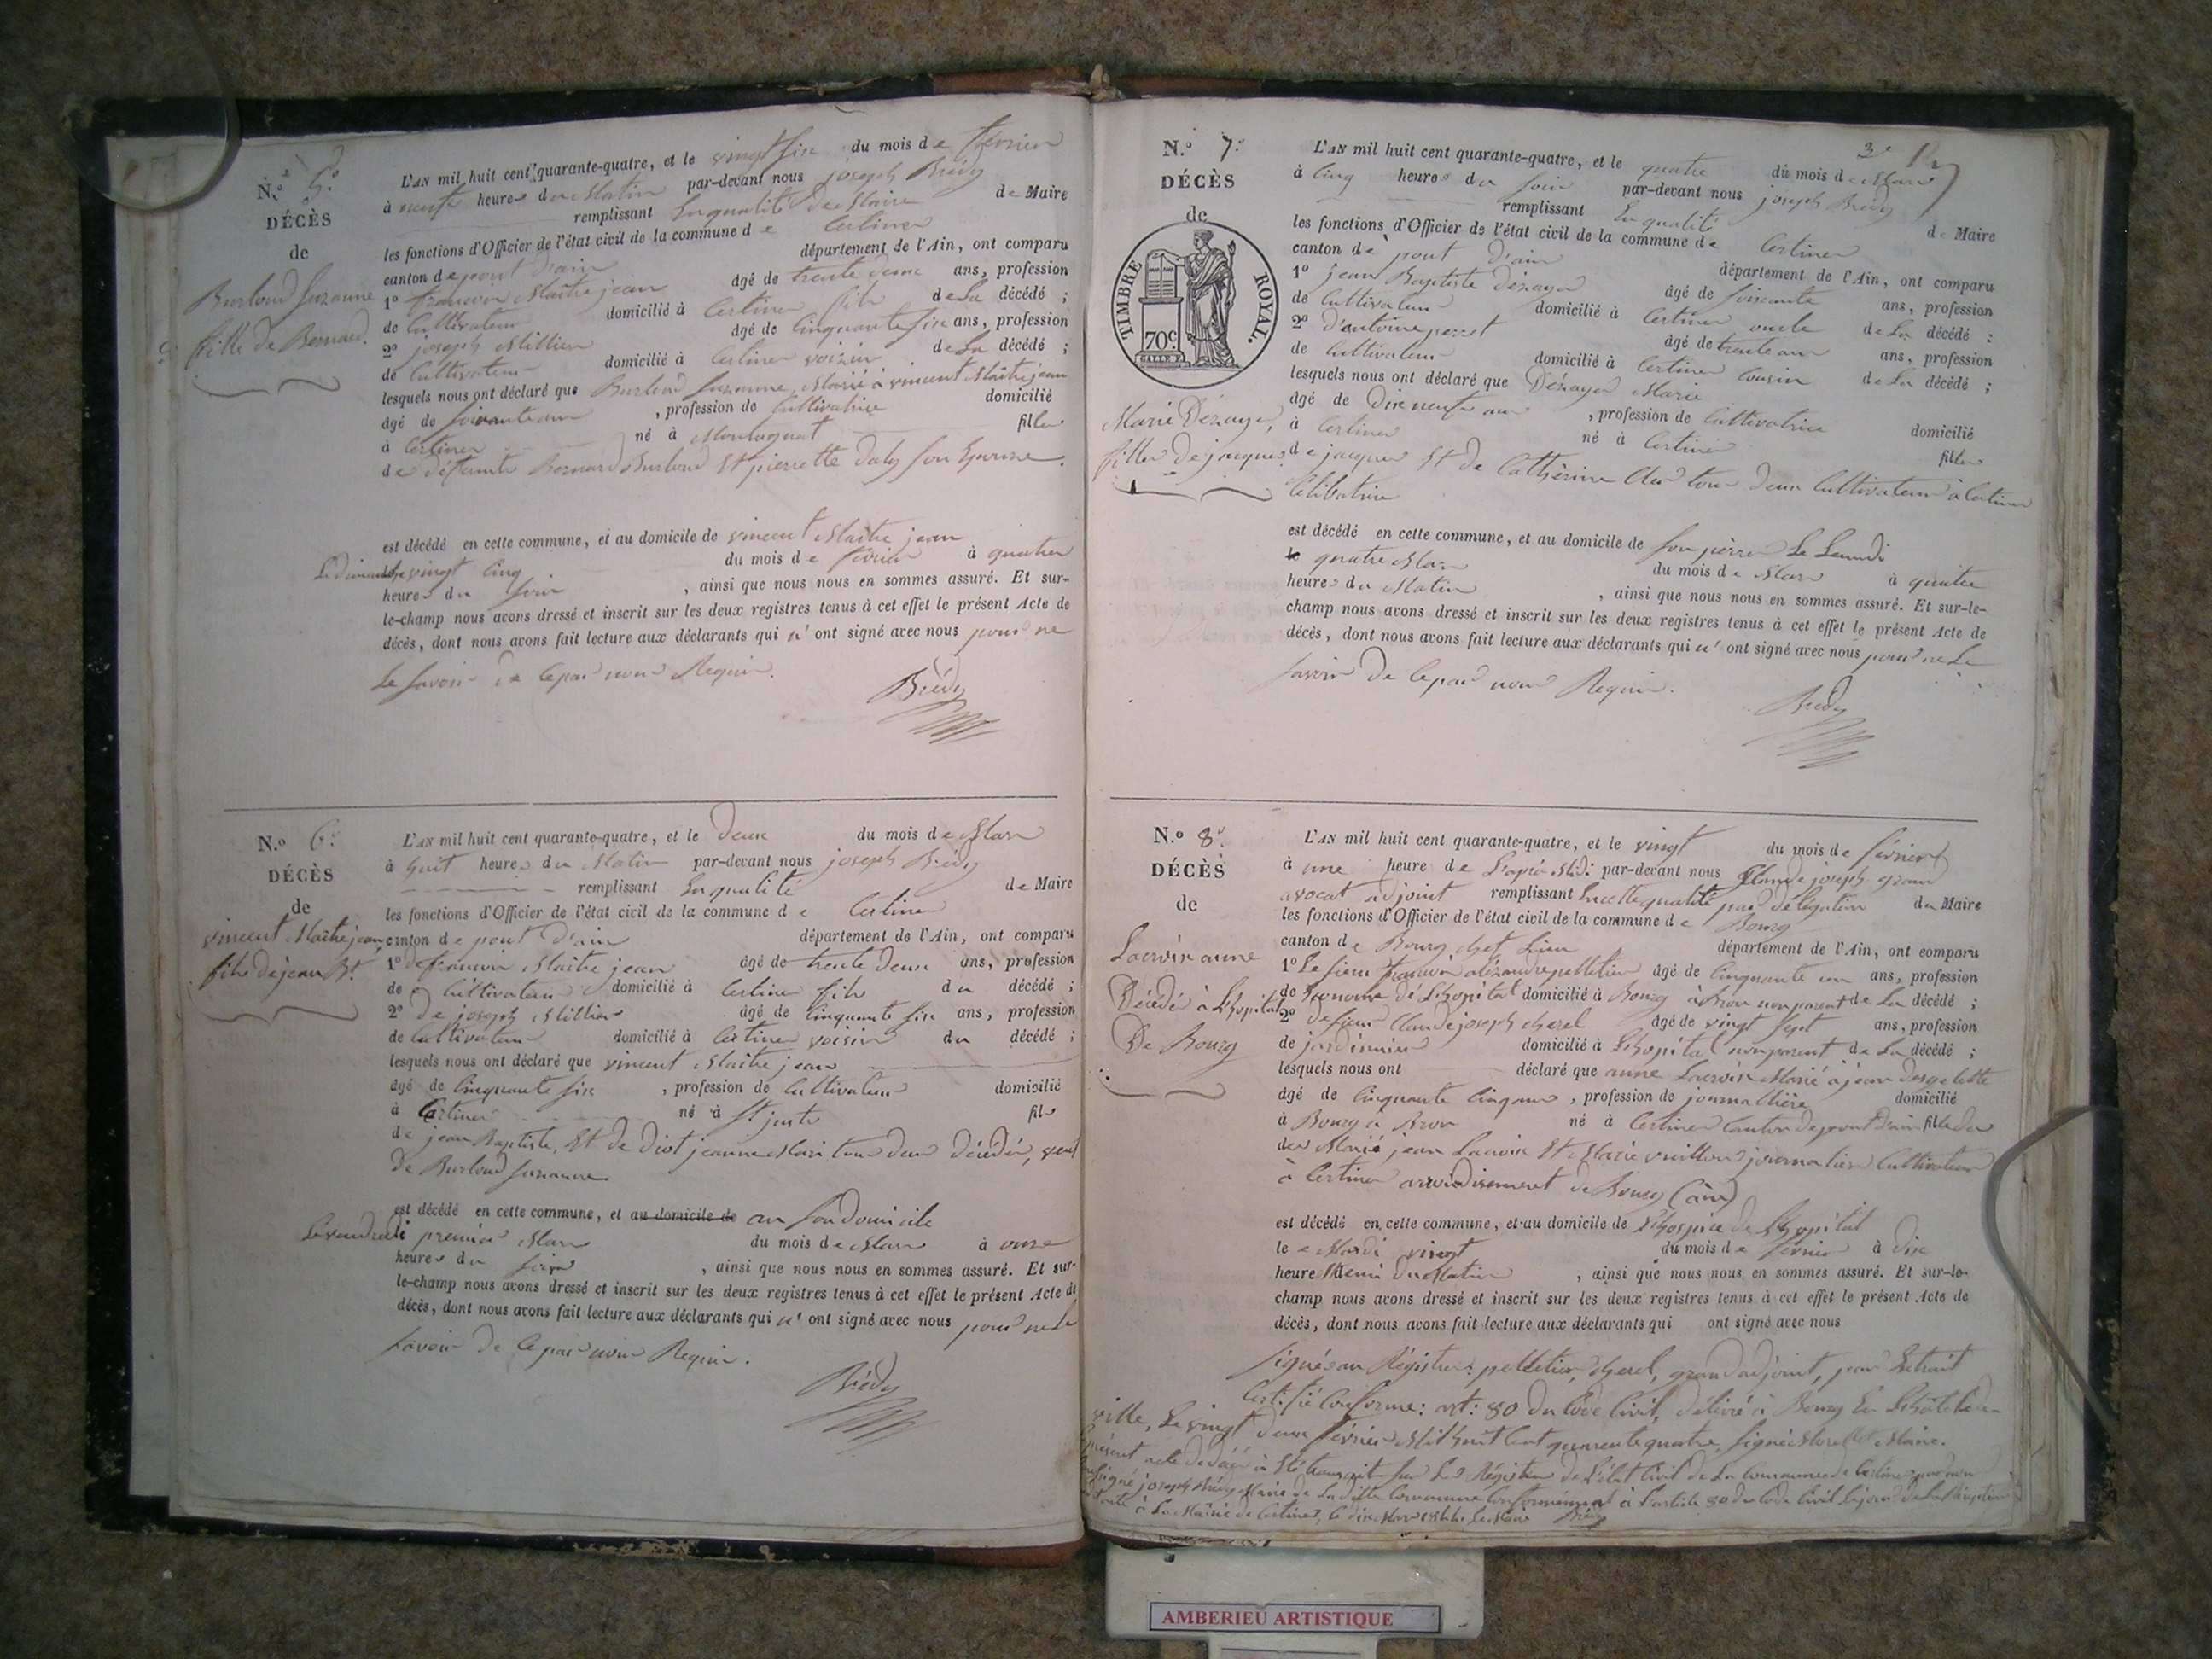 N.º 5º
DÉCÈS
de
Burloud Suzanne
fille de Bernard.
L'AN mil huit cent quarante-quatre, et le vingt six du mois de février
à neuf heures du Matin par-devant nous joseph Brédy
remplissant En qualité de Maire de Maire
les fonctions d'Officier de l'état civil de la commune de Certines
canton de pont d'ain département de l'Ain, ont comparu
1º francois Maitrejean âgé de trente deux ans, profession
de Cultivateur domicilié à Certines fils de La décédé ;
2º joseph Millier âgé de Cinquante six ans, profession
de Cultivateur domicilié à Certines voisin de La décédé ;
lesquels nous ont déclaré que Burloud Suzanne, Marié à vincent Maitrejean
âgé de soixante un , profession de Cultivatrice domicilié
à Certines né à Montagnat fille
de défunts Bernard Burloud Et pierrette Daly son Epouse.
est décédé en cette commune, et au domicile de vincent Maitre jean
Le dimanche vingt cinq du mois de février à quatre
heures du soir , ainsi que nous nous en sommes assuré. Et sur-
le-champ nous avons dressé et inscrit sur les deux registres tenus à cet effet le présent Acte de
décès, dont nous avons fait lecture aux déclarants qui n' ont signé avec nous pour ne
Le savoir de ce par nous Requis.
Brédy
N.º 6º
DÉCÈS
de
vincent Maitrejean
fils de jean Bt.
L'AN mil huit cent quarante-quatre, et le Deux du mois de Mars
à huit heures du Matin par-devant nous joseph Brédy
remplissant En qualité de Maire
les fonctions d'Officier de l'état civil de la commune de Certines
canton de pont d'ain département de l'Ain, ont comparu
1º de francois Maitre jean âgé de trente Deux ans, profession
de Cultivateur domicilié à Certines fils du décédé ;
2º De joseph Millier âgé de Cinquante six ans, profession
de Cultivateur domicilié à Certines voisin du décédé ;
lesquels nous ont déclaré que vincent Maitre jean
âgé de Cinquante six , profession de Cultivateur domicilié
à Certines né à St juste fils
de jean Baptiste, Et de Diot jeanne Marie tous deux décédés, veuf
De Burloud Suzanne
est décédé en cette commune, et au domicile de au son Domicile
Le vendredi premier Mars du mois de Mars à onze
heures du soir , ainsi que nous nous en sommes assuré. Et sur-
le-champ nous avons dressé et inscrit sur les deux registres tenus à cet effet le présent Acte de
décès, dont nous avons fait lecture aux déclarants qui n' ont signé avec nous pour ne Le
savoir de ce par nous Requis.
Brédy
3e
N.º 7º
DÉCÈS
de
TIMBRE ROYAL.
70c.
Marie Dézayes,
fille de jacques
L'AN mil huit cent quarante-quatre, et le quatre du mois de Mars
à Cinq heures du soir par-devant nous joseph Brédy
remplissant En qualité de Maire
les fonctions d'Officier de l'état civil de la commune de Certines
canton de pont d'ain département de l'Ain, ont comparu
1º jean Baptiste Dézayes âgé de soixante ans, profession
de Cultivateur domicilié à Certines oncle de La décédé ;
2º D'antoine perret âgé de trente ans ans, profession
de Cultivateur domicilié à Certines Cousin de La décédé ;
lesquels nous ont déclaré que Dézayes Marie
âgé de Dix neuf ans , profession de Cultivatrice domicilié
à Certines né à Certines fille
de jacques Et de Catherine tous deux Cultivateurs à Certines
Célibatrice
est décédé en cette commune, et au domicile de son père Le Lundi
le quatre Mars du mois de Mars à quatre
heures du Matin , ainsi que nous nous en sommes assuré. Et sur-le-
champ nous avons dressé et inscrit sur les deux registres tenus à cet effet le présent Acte de
décès, dont nous avons fait lecture aux déclarants qui n' ont signé avec nous pour ne Le
savoir de ce par nous Requis.
Brédy
N.º 8º
DÉCÈS
de
Lacroix anne
Décédé à L'hopital
De Bourg
L'AN mil huit cent quarante-quatre, et le vingt du mois de février
à une heure de L'après Midi par-devant nous Claude joseph grand
avocat adjoint remplissant En cette qualité par délégation du Maire
les fonctions d'Officier de l'état civil de la commune de Bourg
canton de Bourg chef Lieu département de l'Ain, ont comparu
1º Le sieur francois alexandre pelletier âgé de Cinquante un ans, profession
de Econome de L'hopital domicilié à Bourg à Brou non parent de La décédé ;
2º Le sieur Claude joseph cherel âgé de vingt sept ans, profession
de jardinier domicilié à L'hopital non parent de La décédé ;
lesquels nous ont déclaré que anne Lacroix Marié à jean
âgé de Cinquante Cinq ans , profession de journallière domicilié
à Bourg à Brou né à Certines Canton de pont d'ain fille de
des Marié jean Lacroix Et Marie journalier Cultivateur
à Certines arrondissement de Bourg (ain)
est décédé en cette commune, et au domicile de L'hospice de L'hopital
le Mardi vingt du mois de février à dix
heure demi du Matin , ainsi que nous nous en sommes assuré. Et sur-le-
champ nous avons dressé et inscrit sur les deux registres tenus à cet effet le présent Acte de
décès, dont nous avons fait lecture aux déclarants qui ont signé avec nous
signé au Régistre : pelletier, cherel, grand adjoint, pour Extrait
Certifié Conforme : art : 80 du Code Civil, délivré à Bourg En L'hôtel de
ville, Le vingt deux février Mil huit Cent quarante quatre, signé Maire.
présent acte de décès a Eté transcrit sur Les Régistres de L'état Civil de La Commune de Certines par nous
soussigné joseph Brédy Maire de La ditte Commune Conformément à L'article 80 du Code Civil
à La Mairie de Certines, le dix Mars 1844. Le Maire Brédy
AMBERIEU ARTISTIQUE